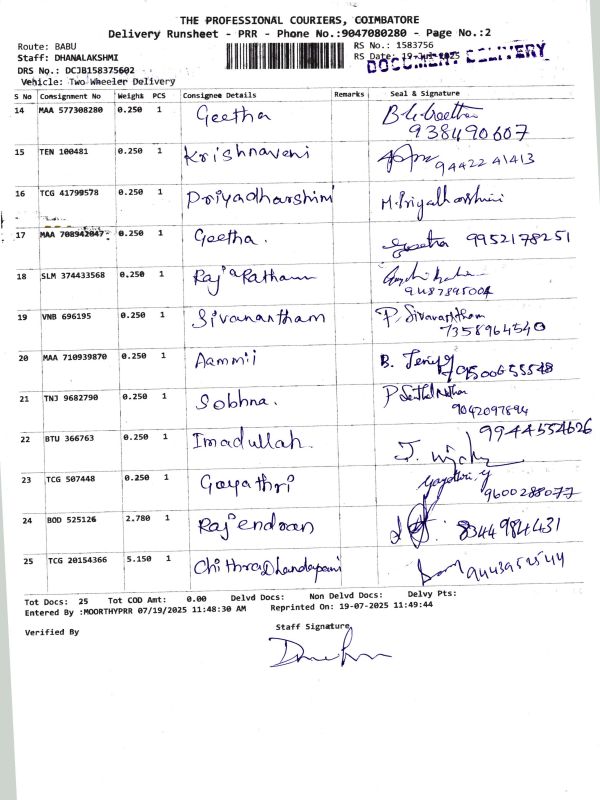 THE PROFESSIONAL COURIERS, COIMBATORE
Delivery Runsheet - PRR - Phone No.:9047080280 - Page No.:2
Route: BABU
RS No.: 1583756
Staff: DHANALAKSHMI
RS Date: 19-Jul-2025
DOCUMENT DELIVERY
DRS No.: DCJB158375602
Vehicle: Two Wheeler Delivery
S No Consignment No Weight PCS Consignee Details Remarks Seal & Signature
14 MAA 577308280 0.250 1 Geetha
938490607
15 TEN 100481 0.250 1 Krishnaveni 9442241413
16 TCG 41799578 0.250 1 Priyadharshini M. Priyadharshini
17 MAA 708942047 0.250 1 Geetha. Geetha 9952178251
18 SLM 374433568 0.250 1 Raj a Ratham
9487895004
19 VNB 696195 0.250 1 Sivanantham P. Sivanantham
7358964540
20 MAA 710939870 0.250 1 Aammii B.
21 TNJ 9682790 0.250 1 Sobhna.
9042097894
22 BTU 366763 0.250 1 Imadullah. 9944554626
23 TCG 507448 0.250 1 Gayathri Gayathri. y
9600288077
24 BOD 525126 2.780 1 Rajendran 8344984431
25 TCG 20154366 5.150 1 Chithra Dhandapani 9443952544
Tot Docs: 25 Tot COD Amt: 0.00 Delvd Docs: Non Delvd Docs: Delvy Pts:
Entered By :MOORTHYPRR 07/19/2025 11:48:30 AM Reprinted On: 19-07-2025 11:49:44
Verified By
Staff Signature